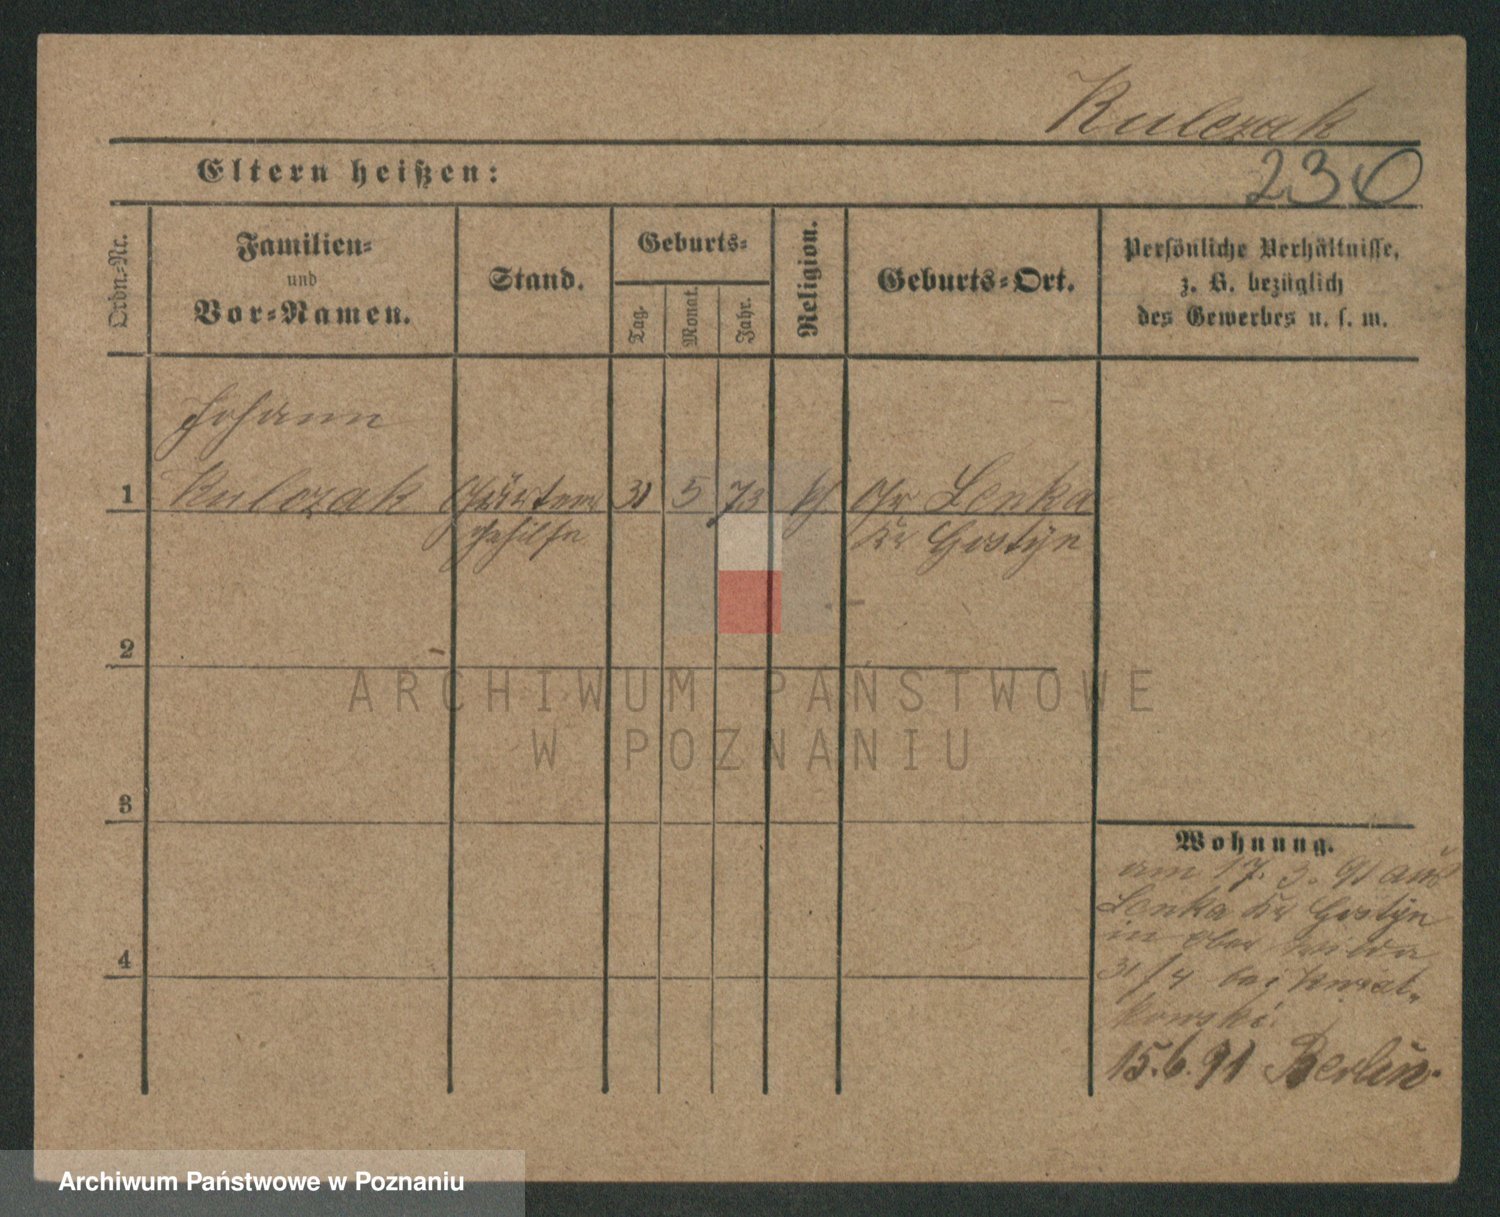 Kulczak
230
Eltern heißen:
Ordn.-Nr.
Familien-
und
Vor-Namen.
Stand.
Geburts-
Tag.
Monat.
Jahr.
Religion.
Geburts-Ort.
Persönliche Verhältnisse,
z. B. bezüglich
des Gewerbes u. s. w.
Johann
1 Kulczak Gärtner 31 5 73 Gr Lenka
gehilfe Kr Gostyn
2
ARCHIWUM PAŃSTWOWE
W POZNANIU
3
Wohnung.
am 17. 3. 91 aus
Lenka Kr Gostyn
in Ober Wilda
31/4 bei Kwiat-
kowski
4
15.6.91 Berlin.
Archiwum Państwowe w Poznaniu